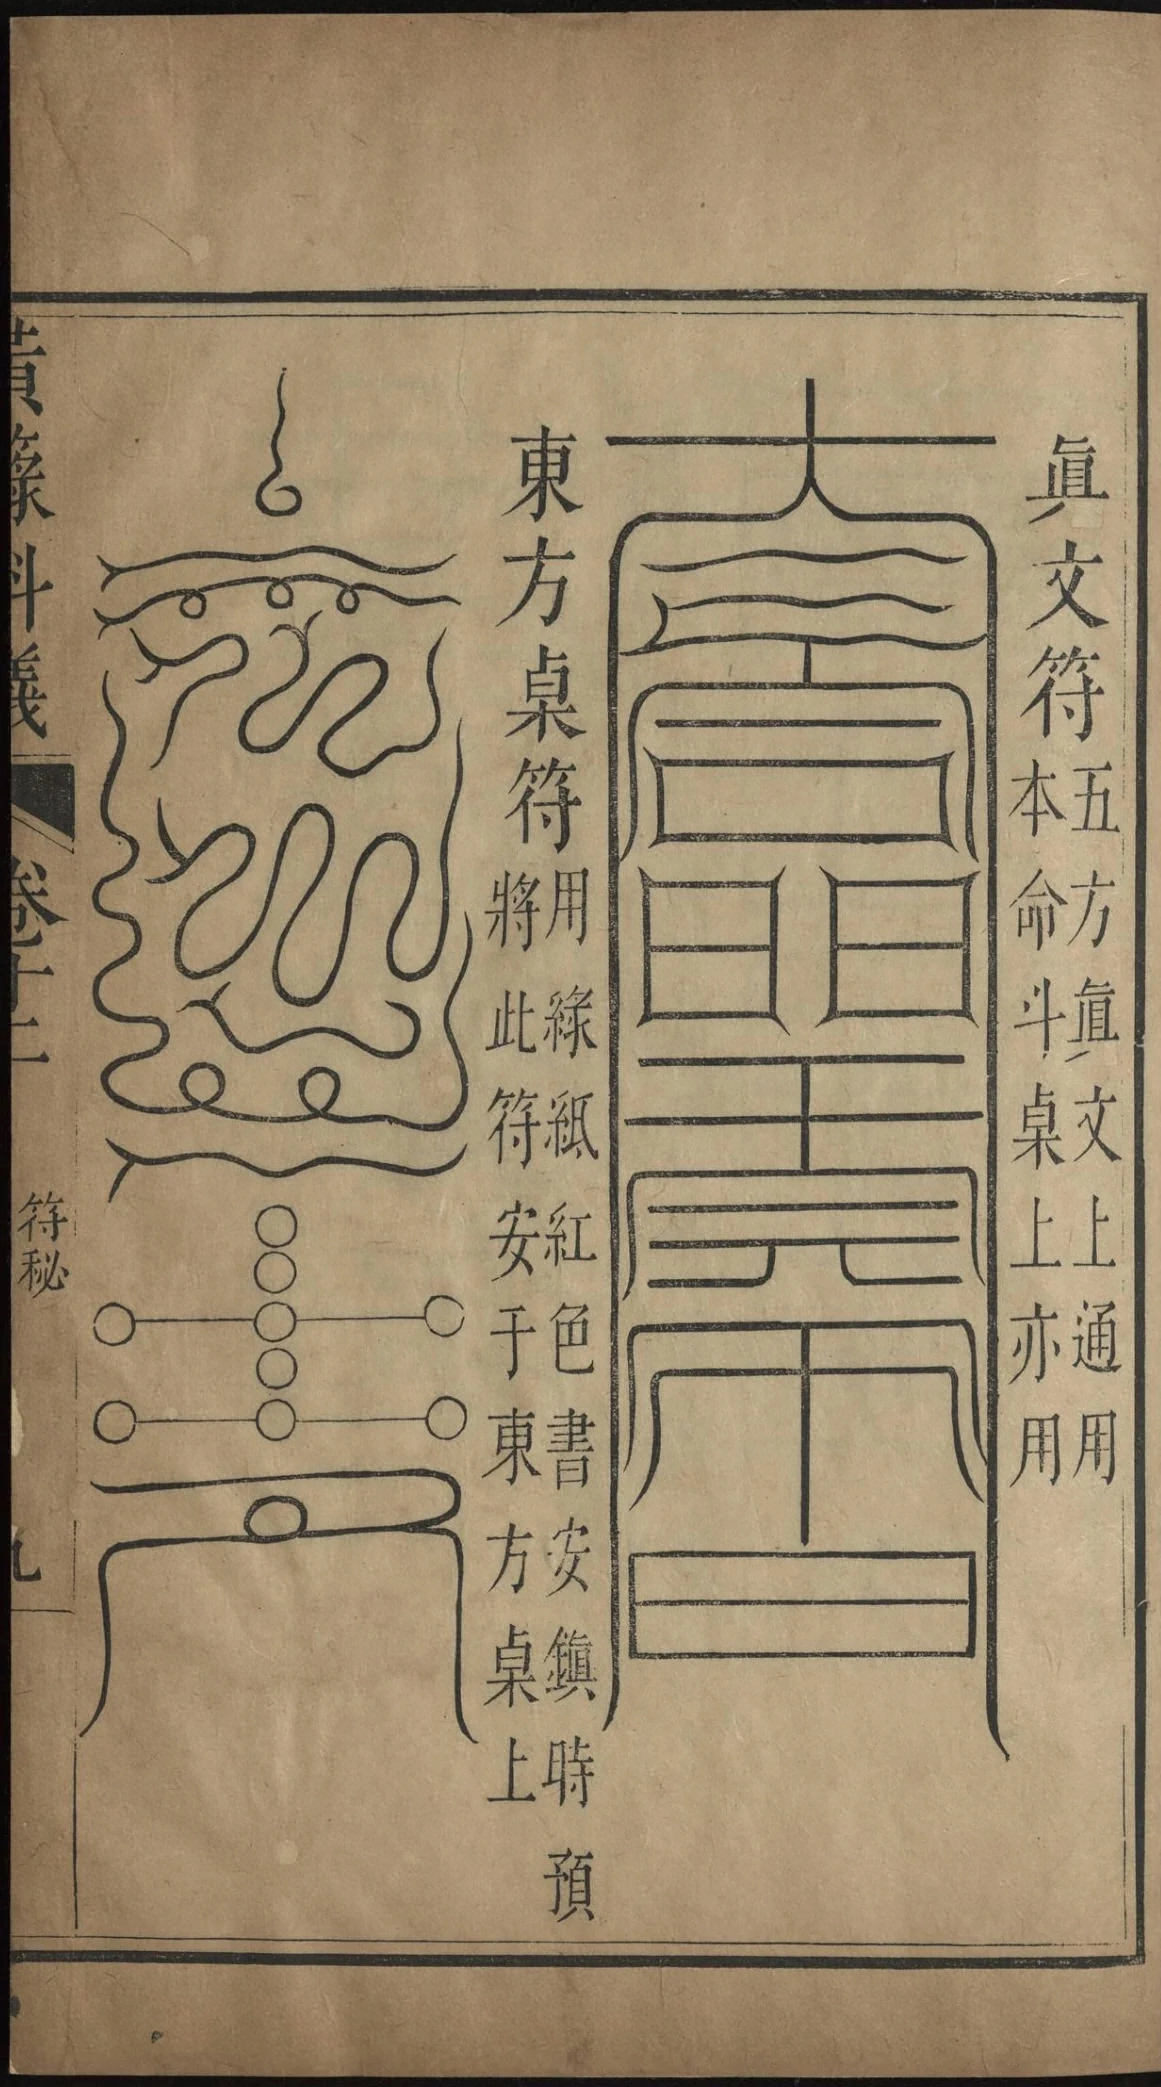 眞文符
五方眞文上通用
本命斗桌上亦用
東方桌符
用綠紙紅色書安鎮時預
將此符安于東方桌上
黃籙科儀
卷十二
符秘
九